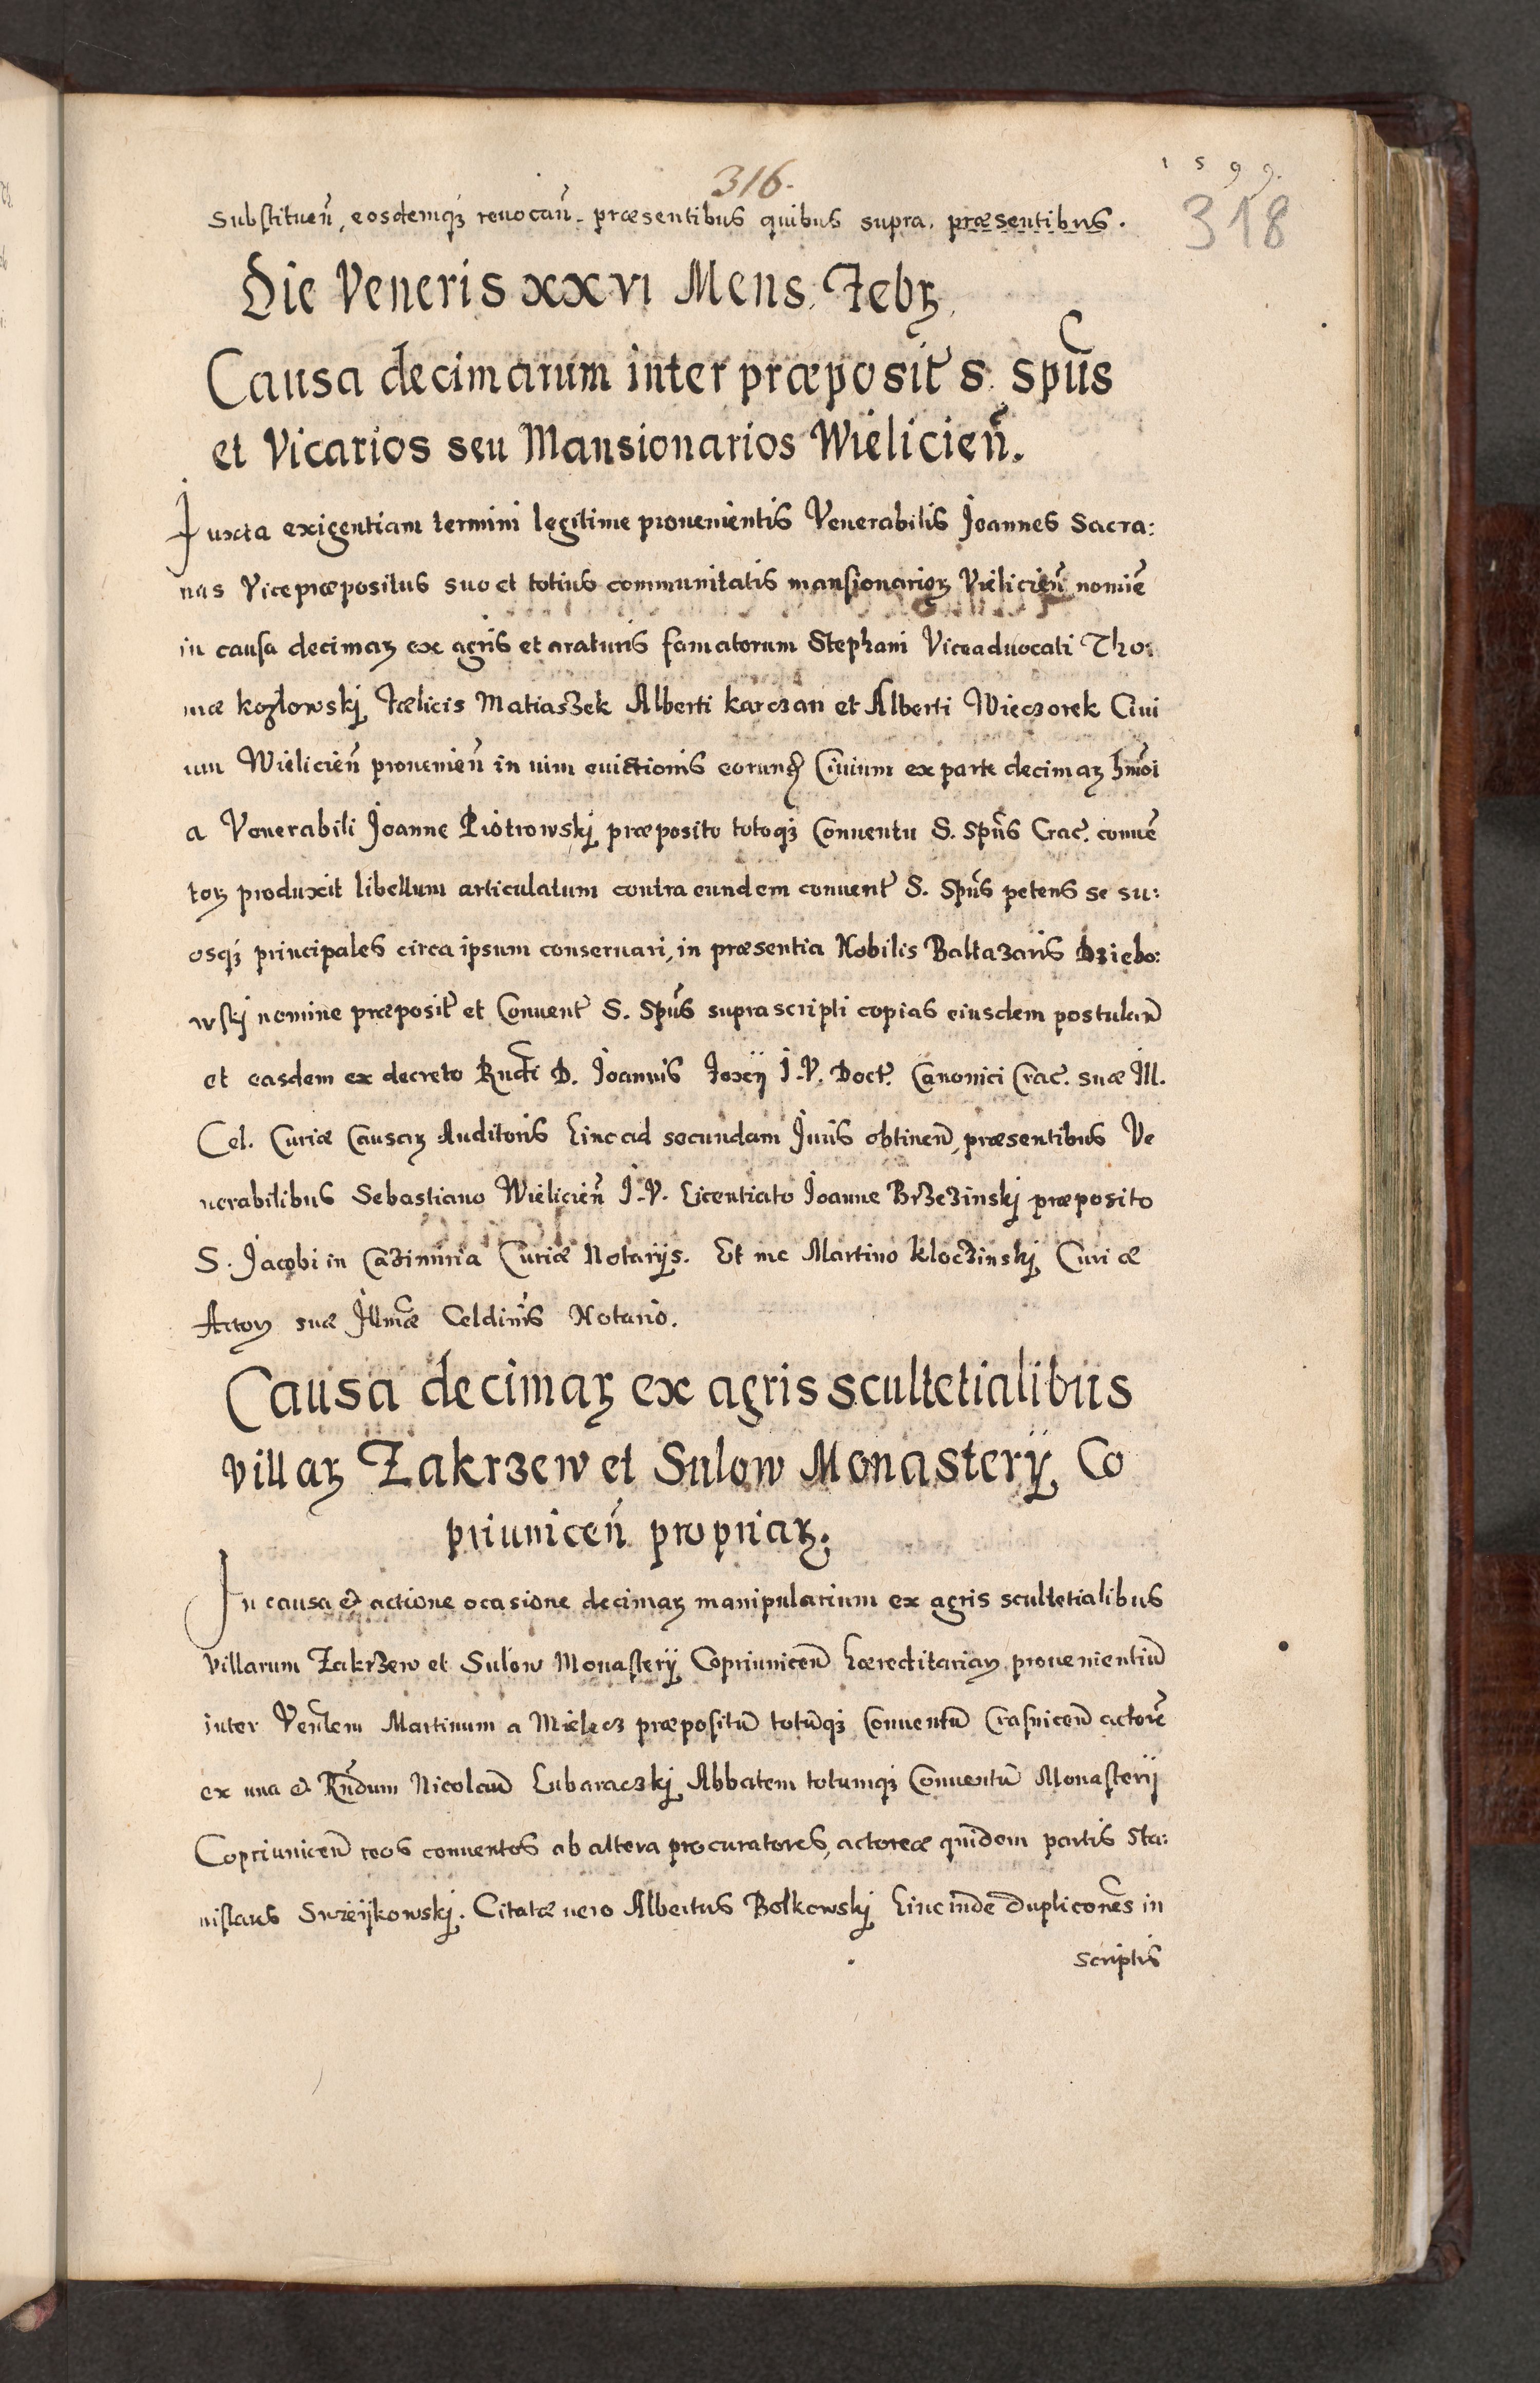 1599.
316.
318
substitueñ, eosdemqȝ reuocañ. præsentibus quibus supra. præsentibus.
Die Veneris xxvi Mens. Febꝝ.
Causa decimarum inter præposit̃ S. Spũs
et Vicarios seu Mansionarios Wielicieñ.
Iuxta exigentiam termini legitime prouenientis Venerabilis Joannes Sacra:
nus Vicepræpositus suo et totius communitatis mansionarioꝝ Vielicieñ nomiẽ
in causa decimaꝝ ex agris et araturis famatorum Stephani Viceaduocati Tho:
mæ Kozlowskj Fælicis Matiaszek Alberti Karczan et Alberti Wieczorek Ciui
um Wielicieñ prouenieñ in uim euictionis eorunđ Ciuium ex parte decimaꝝ hm̃oi
a Venerabili Joanne Piotrowskj præposito totoqȝ Conuentu S. Spũs Crac̃. conuẽ
toꝝ produxit libellum articulatum contra eundem conuent̃ S. Spũs petens se su:
osqȝ principales circa ipsum conseruari, in præsentia Nobilis Baltazaris Dziebo:
wskj nomine præposit̃ et Conuent̃ S. Spũs suprascripti copias eiusdem postulañ
et easdem ex decreto Rnđi D. Joannis Foxij I. V. Doct̃. Canonici Crac̃. suæ Ill.
Cel. Curiæ Causaꝝ Auditoris hinc ad secundam Juris obtineñ, præsentibus Ve
nerabilibus Sebastiano Wielicieñ I. V. Licentiato Joanne Brzezinskj præposito
S. Jacobi in Cazimiria Curiæ Notarijs. Et me Martino Kloczinskj Curiæ
Actoꝝ suæ Illm̃æ Celdinis̃ Notario.
Causa decimaꝝ ex agris scultetialibus
villaꝝ Zakrzew et Sulow Monasterij Co
priuniceñ propriaꝝ;
In causa et actione ocasione decimaꝝ manipularium ex agris scultetialibus
villarum Zakrzew et Sulow Monasterij Copriuniceñ hæreditariaꝝ prouenientiũ
inter Venlem̃ Martinum a Mielecz præpositũ totũqȝ Conuentũ Crasniceñ actorẽ
ex una et Rñdum Nicolaũ Lubaraczkj Abbatem totumqȝ Conuentũ Monasterij
Copriuniceñ reos conuentos ab altera procuratores, actoreæ quidem partis Sta:
nislaus Swzeijkowskj. Citatæ uero Albertus Bolkowskj hinc inde duplicoñes in
scriptis